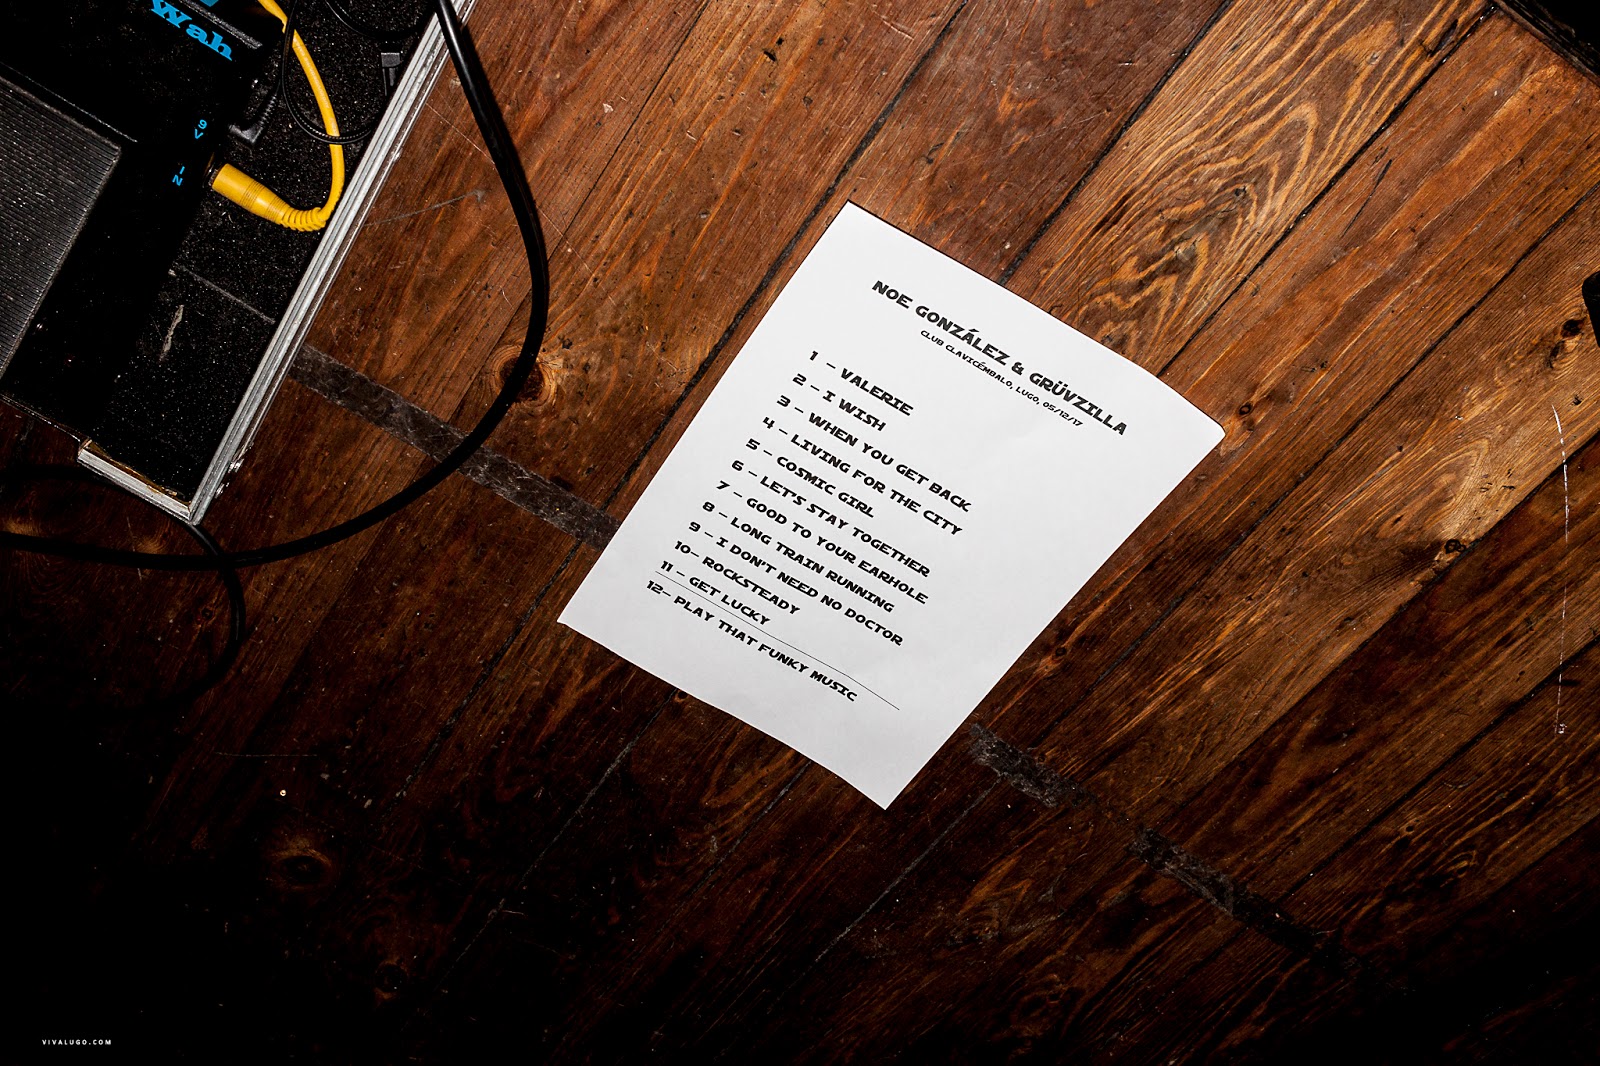 Wah
9V
IN
NOE GONZÁLEZ & GRÜVZILLA
CLUB CLAVICÉMBALO, LUGO, 05/12/17
1 - VALERIE
2 - I WISH
3 - WHEN YOU GET BACK
4 - LIVING FOR THE CITY
5 - COSMIC GIRL
6 - LET'S STAY TOGETHER
7 - GOOD TO YOUR EARHOLE
8 - LONG TRAIN RUNNING
9 - I DON'T NEED NO DOCTOR
10- ROCKSTEADY
11 - GET LUCKY
12- PLAY THAT FUNKY MUSIC
VIVALUGO.COM